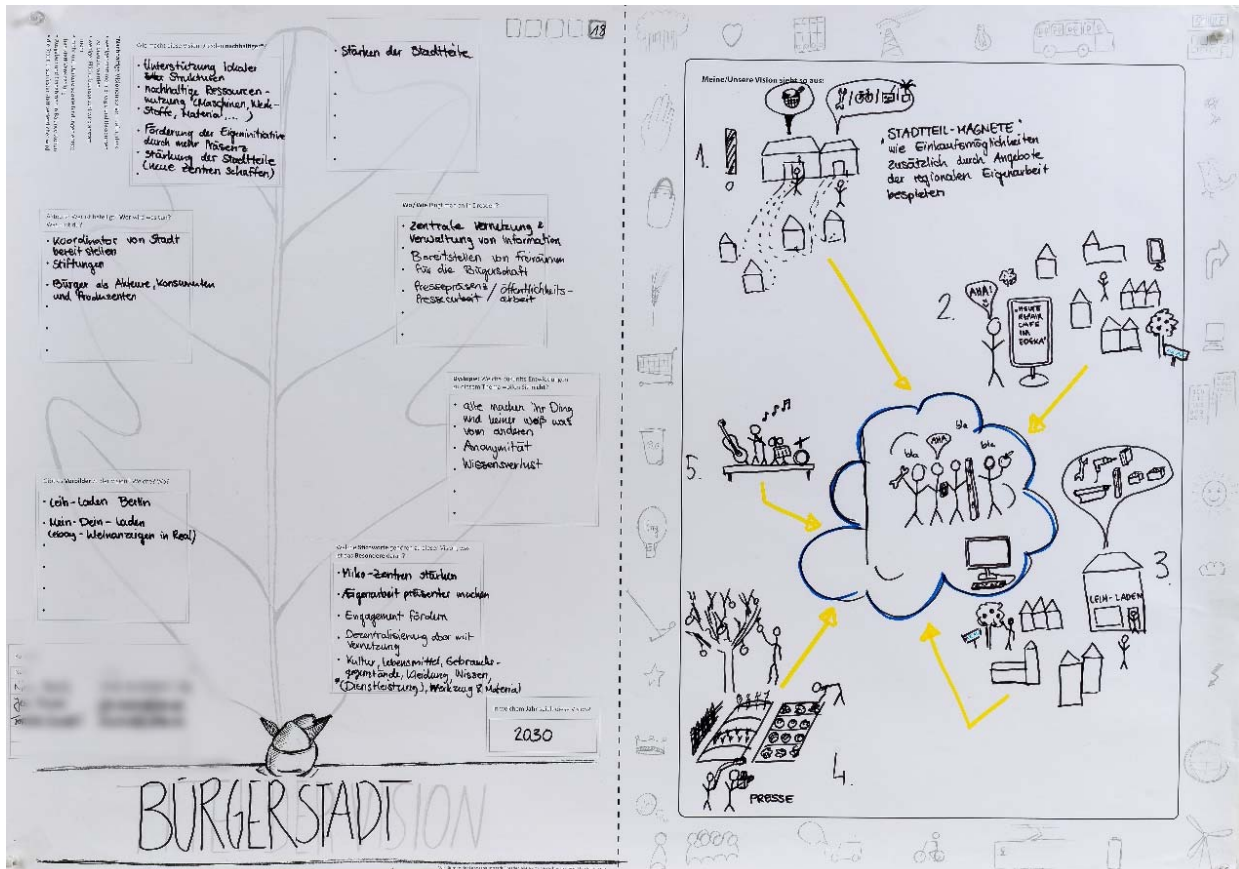 18
• Unterstützung lokaler
Strukturen
• nachhaltige Ressourcen-
nutzung (Maschinen, Werk-
stoffe, Material, ... )
• Förderung der Eigeninitiative
durch mehr Präsenz
• Stärkung der Stadtteile
(neue Zentren schaffen)
• Stärken der Stadtteile
• Koordinator von Stadt
bereit stellen
• Stiftungen
• Bürger als Akteure, Konsumenten
und Produzenten
• Zentrale Vernetzung &
Verwaltung von Information
• Bereitstellen von Freiräumen
für die Bürgerschaft
• Pressepräsenz / Öffentlichkeits-
Pressearbeit arbeit
• alle machen ihr Ding
und keiner weiß was
vom anderen
• Anonymität
• Wissensverlust
• Leih-Laden Berlin
• Mein-Dein-Laden
(ebay-Kleinanzeigen in Real)
• Miko-Zentren stärken
• Eigenarbeit präsenter machen
• Engagement fördern
• Dezentralisierung aber mit
Vernetzung
• Kultur, Lebensmittel, Gebrauchs-
gegenstände, Kleidung, Wissen,
(Dienstleistung), Werkzeug & Material
2030
BÜRGERSTADT
VISION
Meine/Unsere Vision sieht so aus:
1.
"STADTTEIL-MAGNETE"
wie Einkaufsmöglichkeiten
zusätzlich durch Angebote
der regionalen Eigenarbeit
bespielen
2.
AHA!
"HEUTE
REPAIR
CAFE
IM
EDEKA"
bla
AHA
bla
bla
5.
3.
LEIH-LADEN
4.
PRESSE